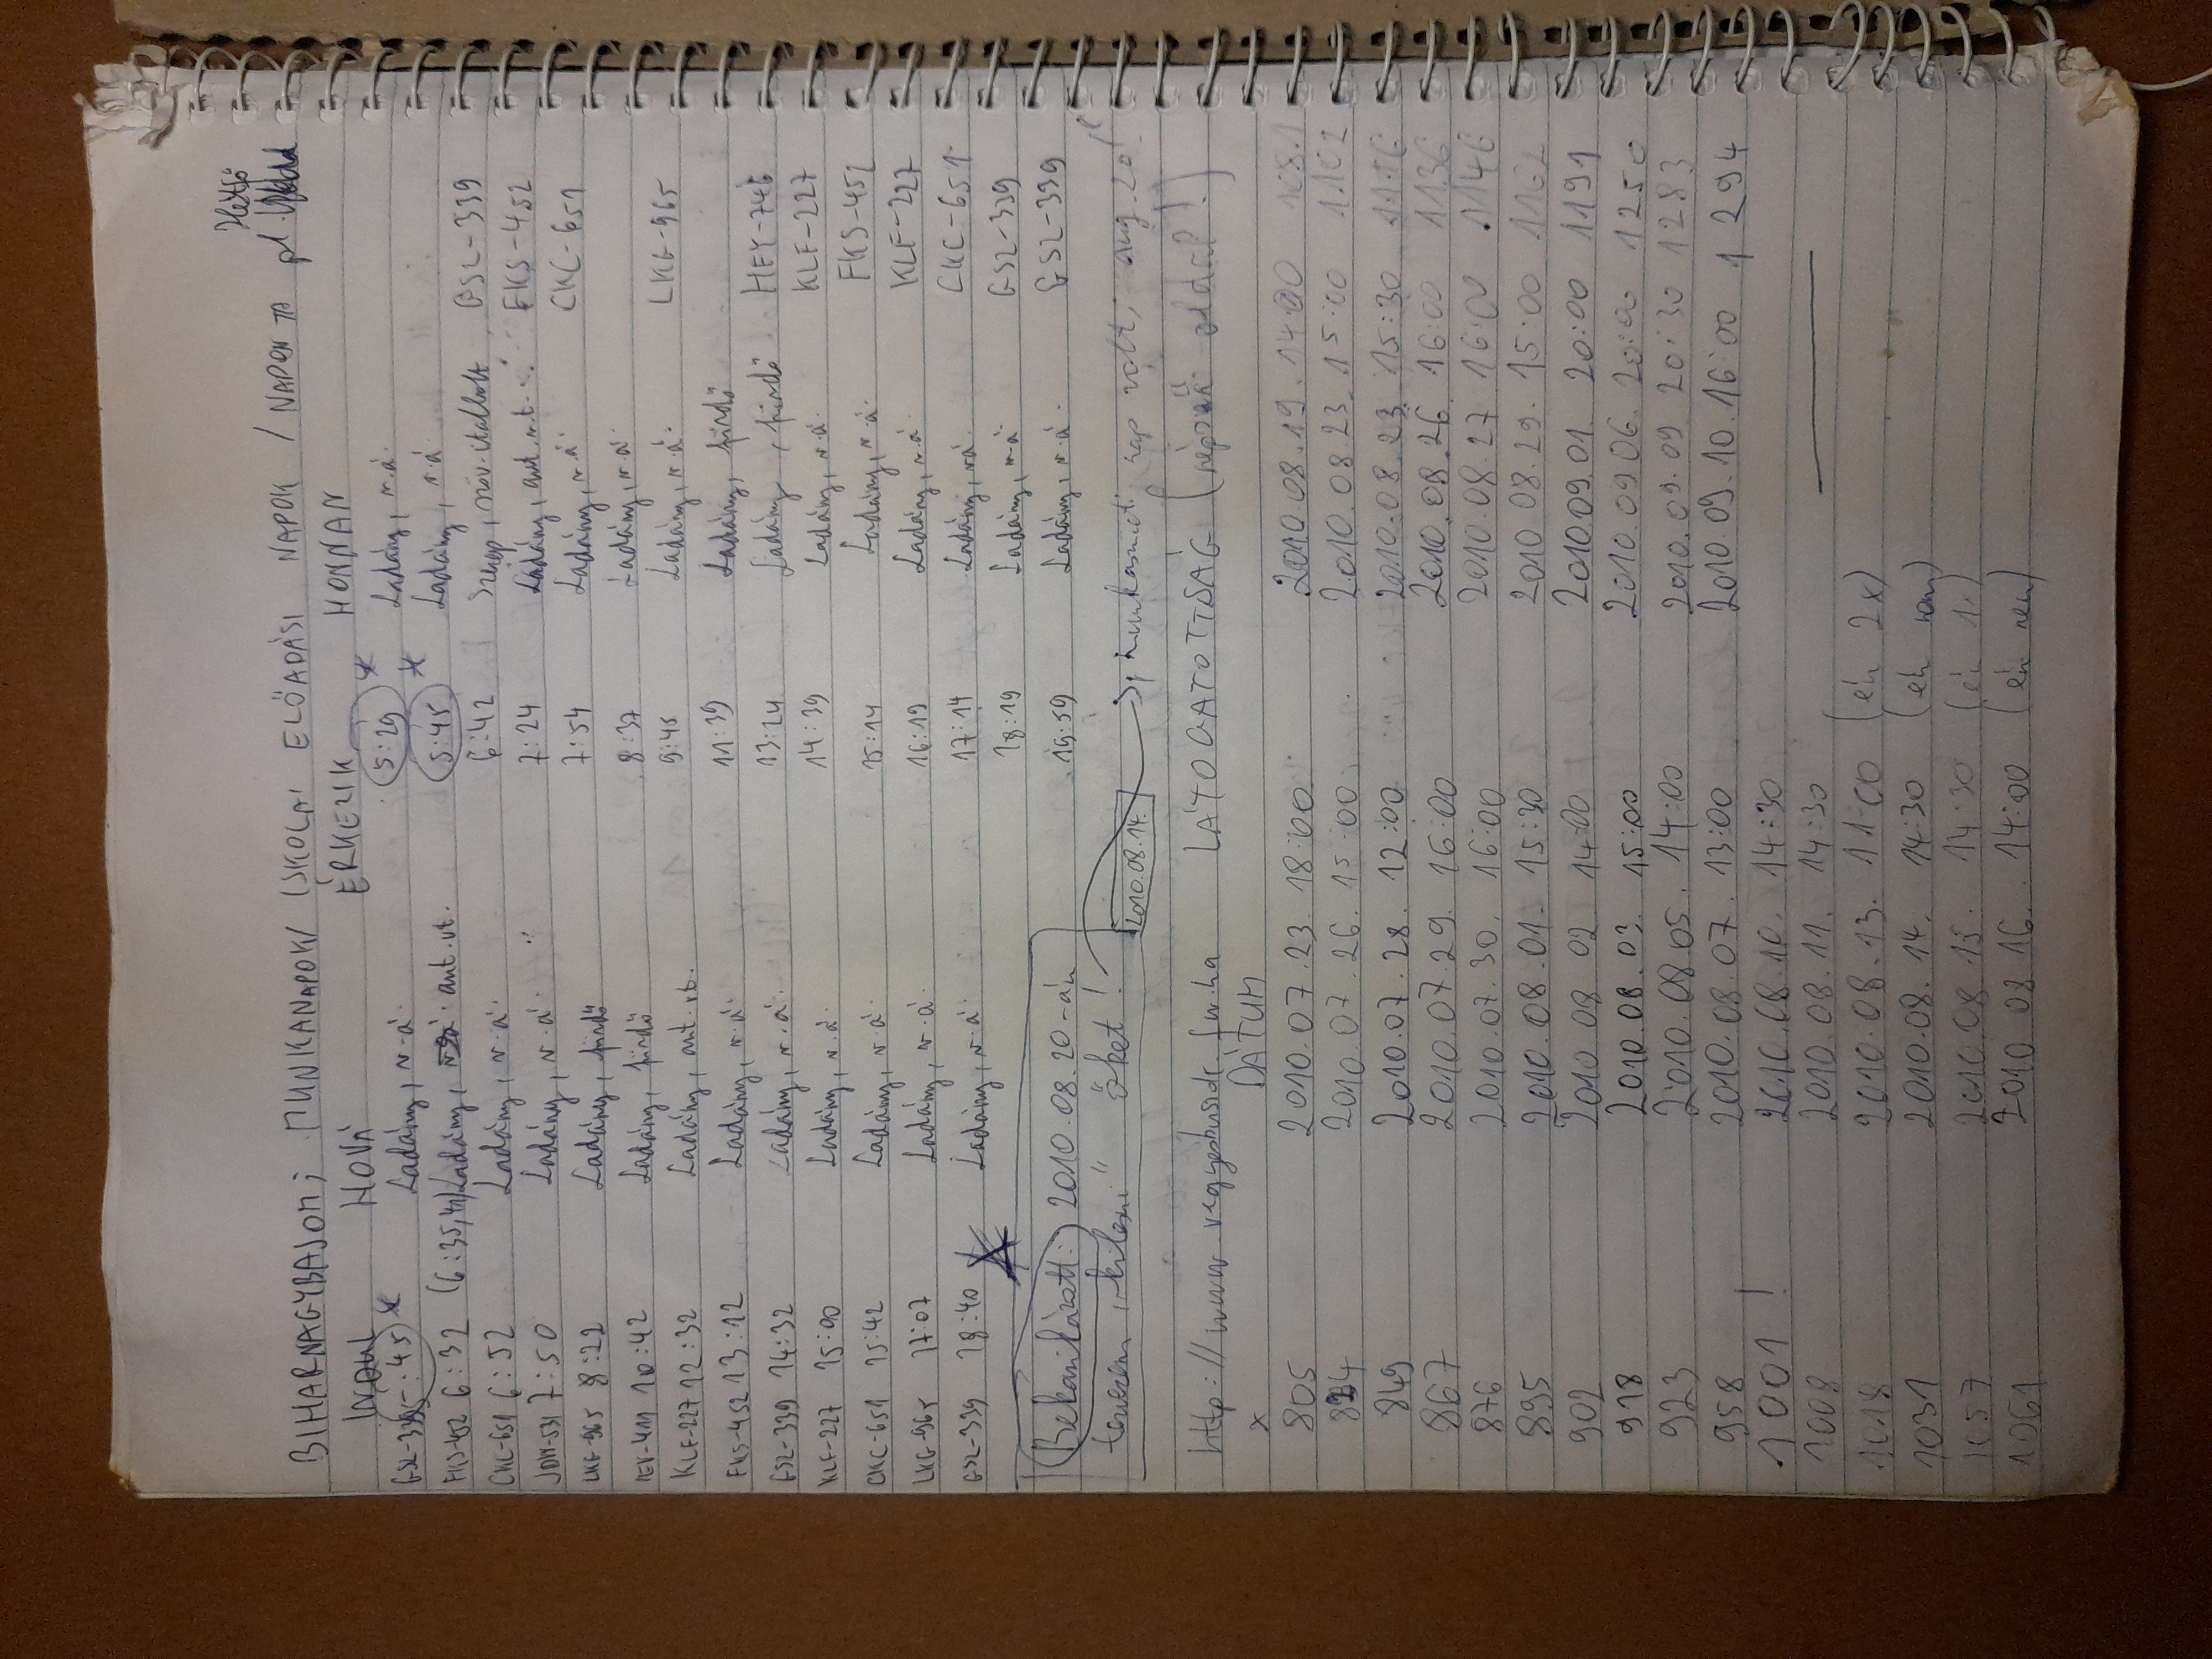 Hétfő
BIHARNAGYBAJOM; MUNKANAPOK/ ISKOLAI ELŐADÁSI NAPOK / NAPONTA pl.
INDUL HOVÁ ÉRKEZIK HONNAN
GSL-339 5:45 * Ladány, v.á. 5:29 * Ladány, v.á.
FKS-452 6:32 (6:35, Ladány, aut.vt. 5:45 * Ladány, v.á.
CKC-651 6:52 Ladány, v.á. 6:42 Szerep, szöv. italbolt GSL-339
JDM-531 7:50 Ladány, v.á. 7:24 Ladány, aut.vt. FKS-452
LKG-965 8:22 Ladány, fürdő 7:54 Ladány, v.á. CKC-651
IEV-411 10:42 Ladány, fürdő 8:37 Ladány, v.á.
KLF-227 12:32 Ladány, aut.vt. 9:45 Ladány, v.á. LKG-965
FKS-452 13:12 Ladány, v.á. 11:39 Ladány, fürdő
GSL-339 14:32 Ladány, v.á. 13:24 Ladány, fürdő HEY-746
KLF-227 15:00 Ladány, v.á. 14:39 Ladány, v.á. KLF-227
CKC-651 15:42 Ladány, v.á. 15:14 Ladány, v.á. FKS-452
LKG-965 17:07 Ladány, v.á. 16:19 Ladány, v.á. KLF-227
GSL-339 18:40 Ladány, v.á. 17:14 Ladány, v.á. CKC-651
18:19 Ladány, v.á. GSL-339
19:59 Ladány, v.á. GSL-339
Bekarikázott: 2010.08.20-án
tervezem " őket! 2010.08.14. → munkaszüneti nap volt, aug. 20!
http://www.vegyesbusside.fw.hu LÁTOGATOTTSÁG (népszerű oldal!)
x DÁTUM
805 2010.07.23 18:00 2010.08.19. 14:00 1081
824 2010.07.26. 15:00 2010.08.23. 15:00 1102
849 2010.07.28. 12:00 2010.08.23. 15:30 1116
867 2010.07.29. 16:00 2010.08.26. 16:00 1136
876 2010.07.30. 16:00 2010.08.27 16:00 1146
895 2010.08.01. 15:30 2010.08.29. 15:00 1162
902 2010.08.02 14:00 2010.09.01. 20:00 1191
918 2010.08.03. 15:00 2010.09.06. 20:00 1250
923 2010.08.05. 14:00 2010.09.09 20:30 1283
958 2010.08.07. 13:00 2010.09.10. 16:00 1294
1001! 2010.08.10. 14:30
1008 2010.08.11. 14:30
1018 2010.08.13. 11:00 (én 2x)
1031 2010.08.14. 14:30 (én nem)
1057 2010.08.15. 14:30 (én 1x)
1061 2010.08.16. 14:00 (én nem)